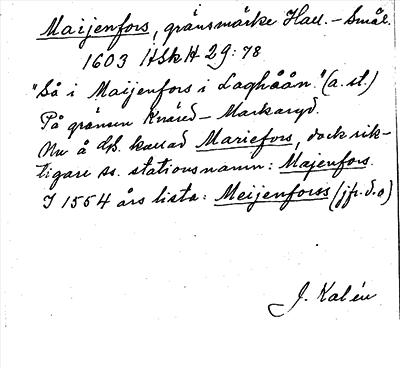 Maijenfors, gränsmärke Hall. – Smål.
1603 HSkH 29:78
"Så i Maijenfors i Laghåån." (a. st.)
På gränsen Knäred – Markaryd.
Nu å kallad Mariefors, dock rik-
tigare ss. stationsnamn: Majenfors.
I 1554 års lista: Meijenforss (jfr. d. o)
J. Kalén